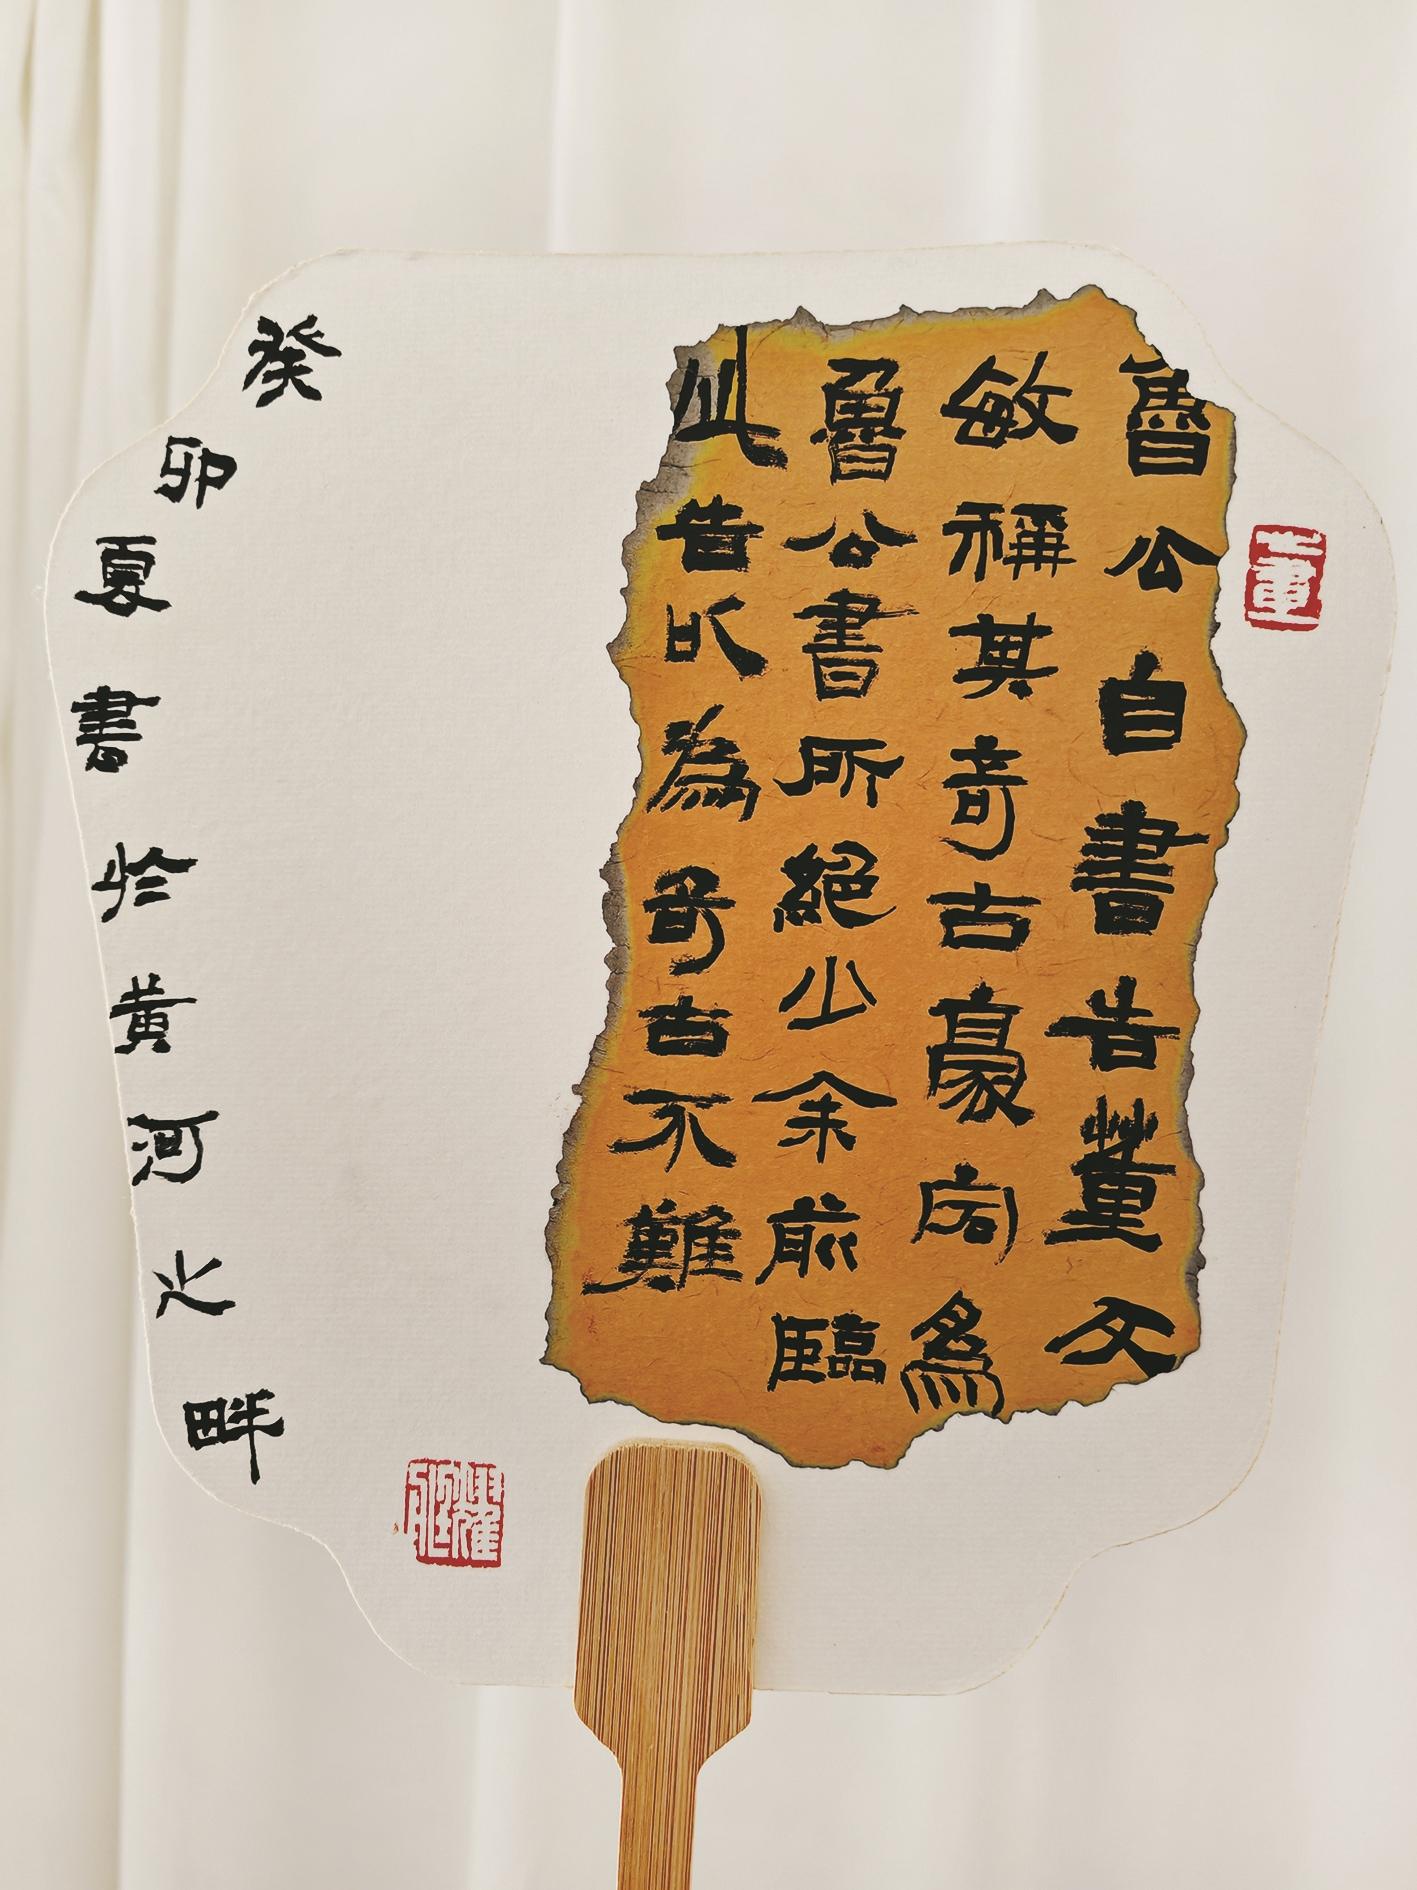 魯公自書告董文
敏稱其奇古豪宕爲
魯公書所絕少余前臨
此告以為奇古不難
癸卯夏書於黄河之畔